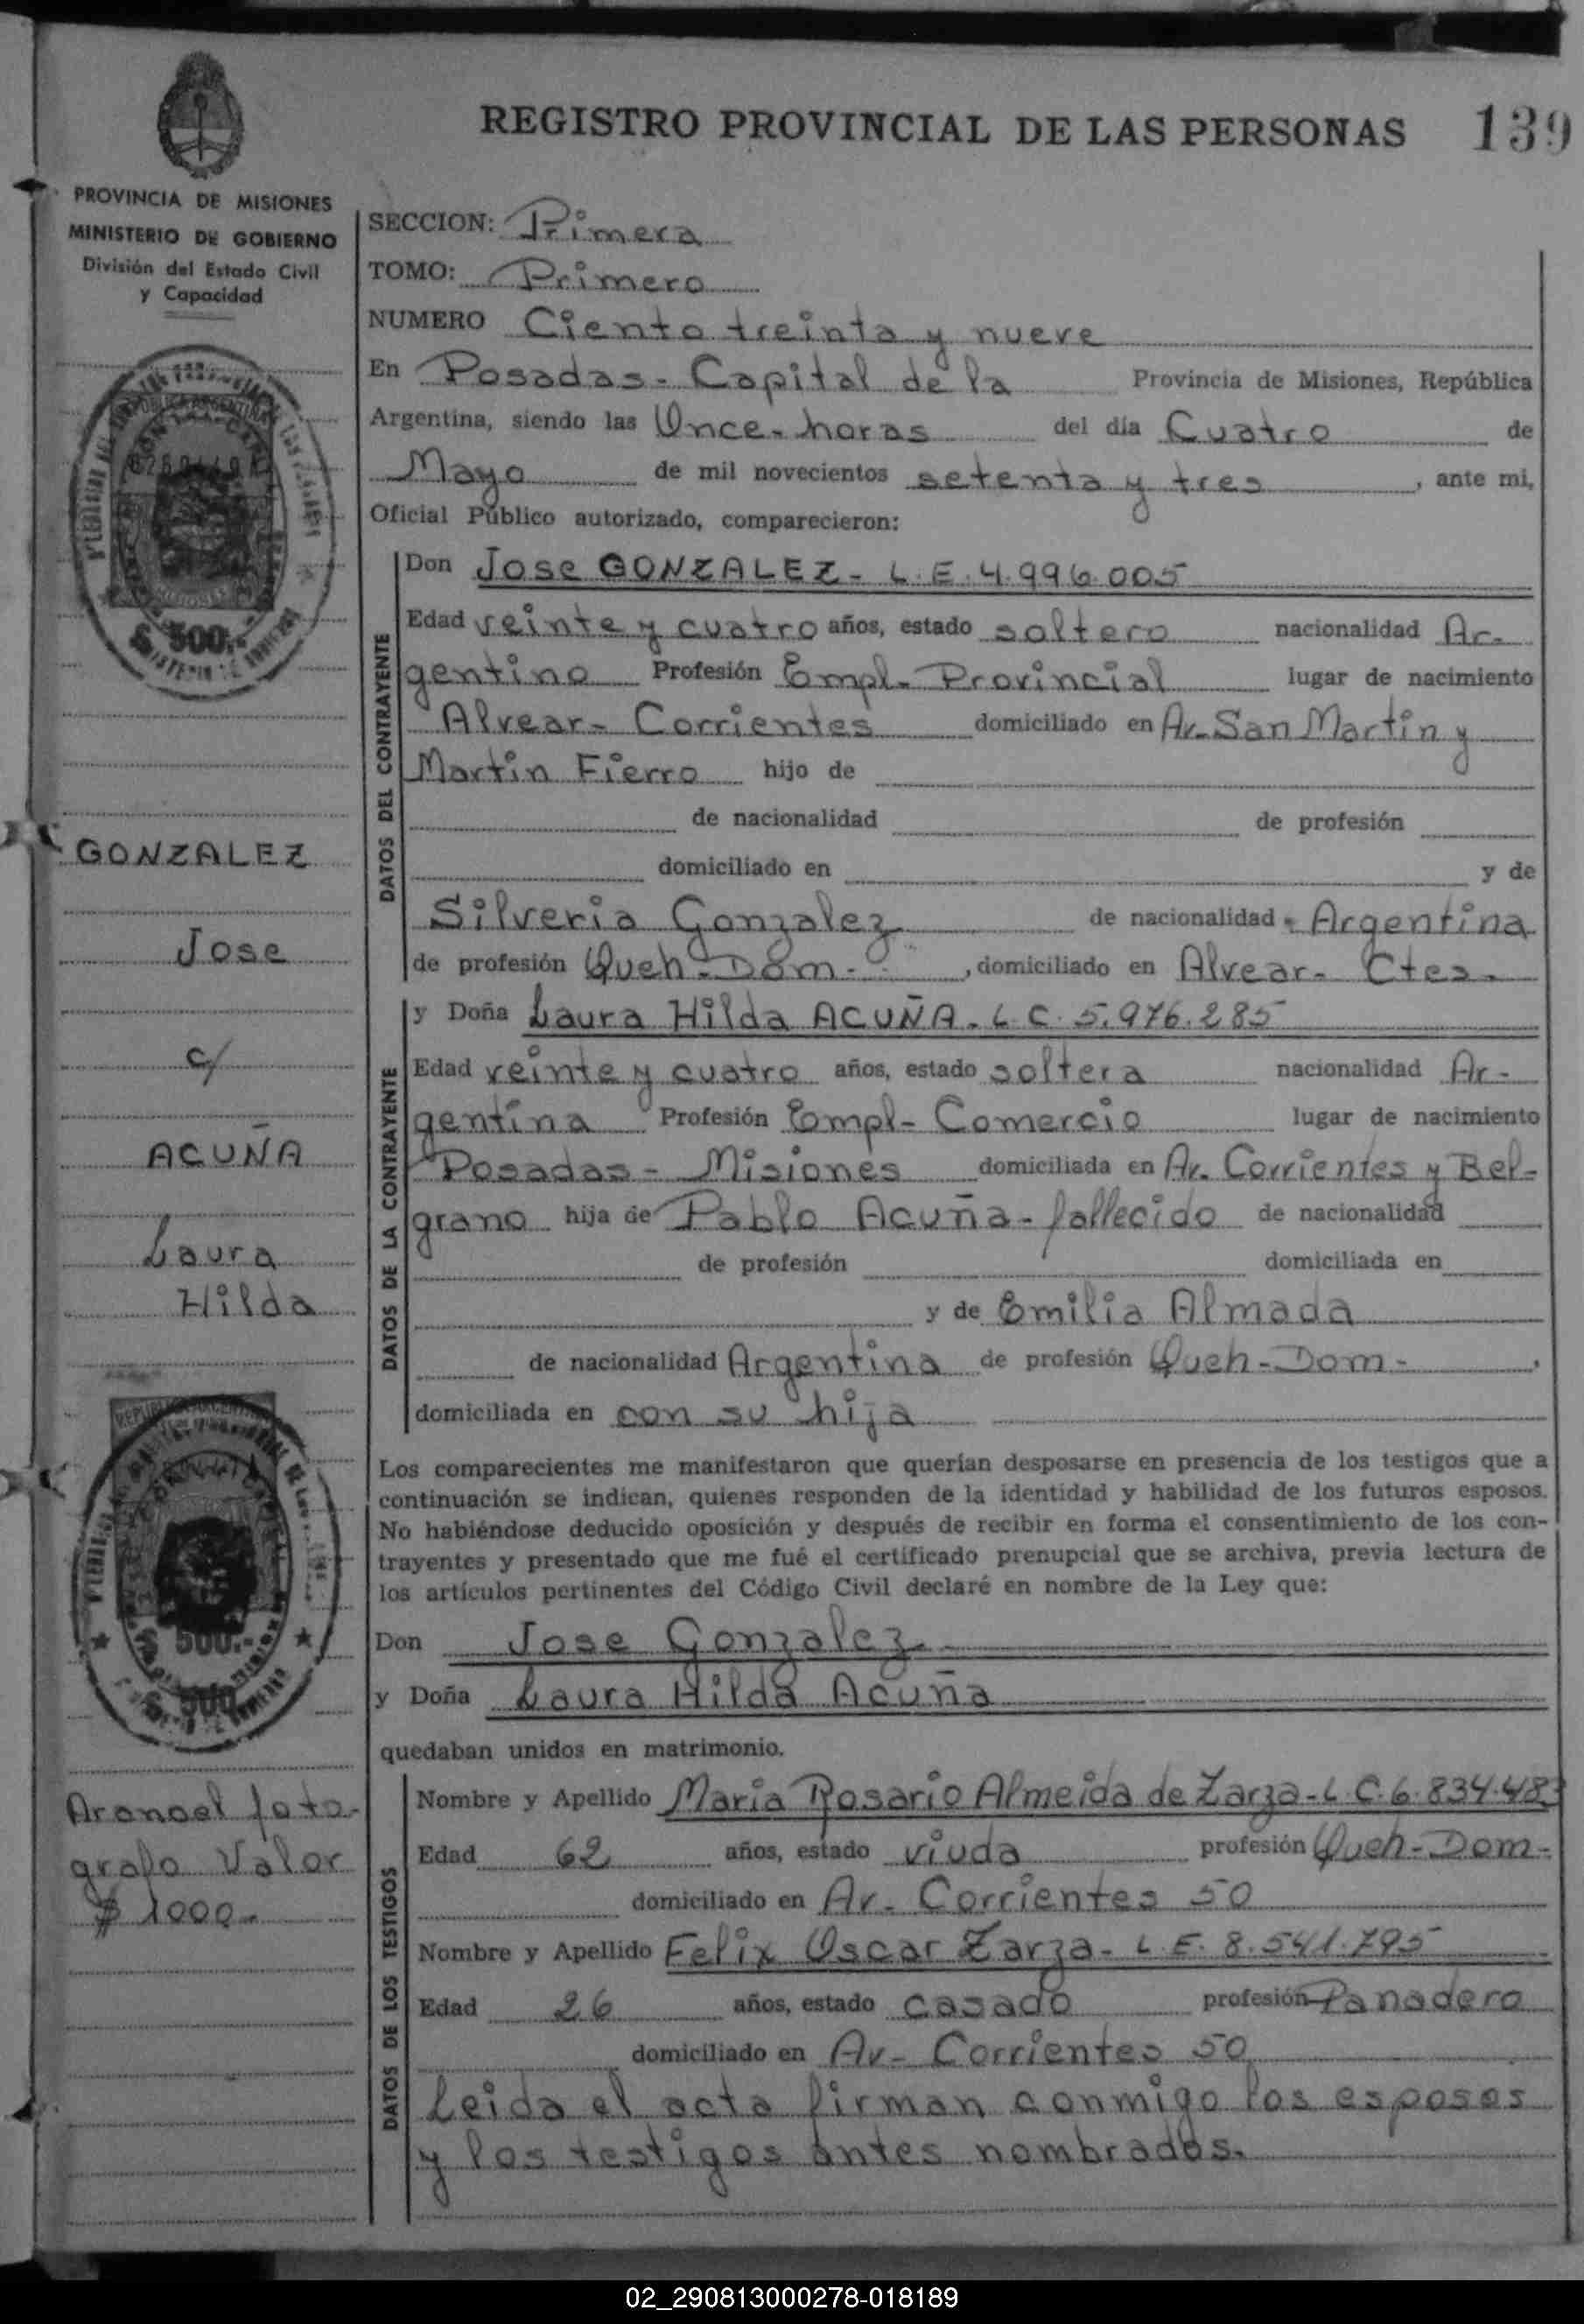 REGISTRO PROVINCIAL DE LAS PERSONAS 139
PROVINCIA DE MISIONES
MINISTERIO DE GOBIERNO
División del Estado Civil
y Capacidad
SECCION: Primera
TOMO: Primero
NUMERO Ciento treinta y nueve
En Posadas - Capital de la Provincia de Misiones, República
Argentina, siendo las Once - horas del día Cuatro de
Mayo de mil novecientos setenta y tres, ante mi,
Oficial Público autorizado, comparecieron:
DATOS DEL CONTRAYENTE
Don Jose GONZALEZ - L.E. 4.996.005
Edad veinte y cuatro años, estado soltero nacionalidad Ar-
gentino Profesión Empl - Provincial lugar de nacimiento
Alvear - Corrientes domiciliado en Av. San Martin y
Martin Fierro hijo de
de nacionalidad de profesión
domiciliado en y de
Silveria Gonzalez de nacionalidad Argentina
de profesión Queh - Dom -, domiciliado en Alvear - Ctes.
DATOS DE LA CONTRAYENTE
y Doña Laura Hilda ACUÑA - L.C. 5.976.285
Edad veinte y cuatro años, estado soltera nacionalidad Ar-
gentina Profesión Empl - Comercio lugar de nacimiento
Posadas - Misiones domiciliada en Av. Corrientes y Bel-
grano hija de Pablo Acuña - fallecido de nacionalidad
de profesión domiciliada en
y de Emilia Almada
de nacionalidad Argentina de profesión Queh - Dom -,
domiciliada en con su hija
Los comparecientes me manifestaron que querían desposarse en presencia de los testigos que a
continuación se indican, quienes responden de la identidad y habilidad de los futuros esposos.
No habiéndose deducido oposición y después de recibir en forma el consentimiento de los con-
trayentes y presentado que me fué el certificado prenupcial que se archiva, previa lectura de
los artículos pertinentes del Código Civil declaré en nombre de la Ley que:
Don Jose Gonzalez
y Doña Laura Hilda Acuña
quedaban unidos en matrimonio.
DATOS DE LOS TESTIGOS
Nombre y Apellido Maria Rosario Almeida de Zarza - L.C. 6.834.483
Edad 62 años, estado viuda profesión Queh - Dom -
domiciliado en Av. Corrientes 50
Nombre y Apellido Felix Oscar Zarza - L.E. 8.541.795
Edad 26 años, estado casado profesión Panadero
domiciliado en Av - Corrientes 50
Leida el acta firman conmigo los esposos
y los testigos antes nombrados.
REPUBLICA ARGENTINA
MISIONES
$ 500.-
GONZALEZ
Jose
c/
ACUÑA
Laura
Hilda
REPUBLICA ARGENTINA
$ 500.-
$ 500
Arancel foto-
grafo Valor
$ 1000.-
02_290813000278-018189